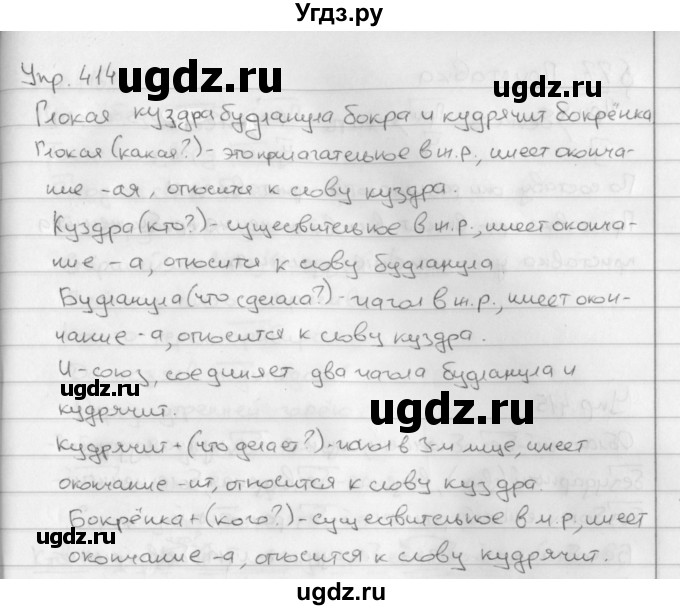 Угдз.ру
Упр. 414
ugdz.ru
Глокая куздра будланула бокра и кудрячит бокрёнка
ugdz.ru
Глокая (какая?) - это прилагательное в ж.р., имеет оконча-
ние -ая, относится к слову куздра.
Куздра (кто?) - существительное в ж.р., имеет оконча-
ние - а, относится к слову будланула
ugdz.ru
Будланула (что сделала?) - глагол в ж.р., имеет окон-
чание - а, относится к слову куздра.
И - союз, соединяет два глагола будланула и
ugdz.ru
кудрячит.
ugdz.ru
Кудрячит + (что делает?) - глагол в 3-м лице, имеет
окончание - ит, относится к слову куздра.
ugdz.ru
Бокрёнка + (кого?) - существительное в м.р., имеет
окончание - а, относится к слову кудрячит.
ugdz.ru
©Угдз.ру